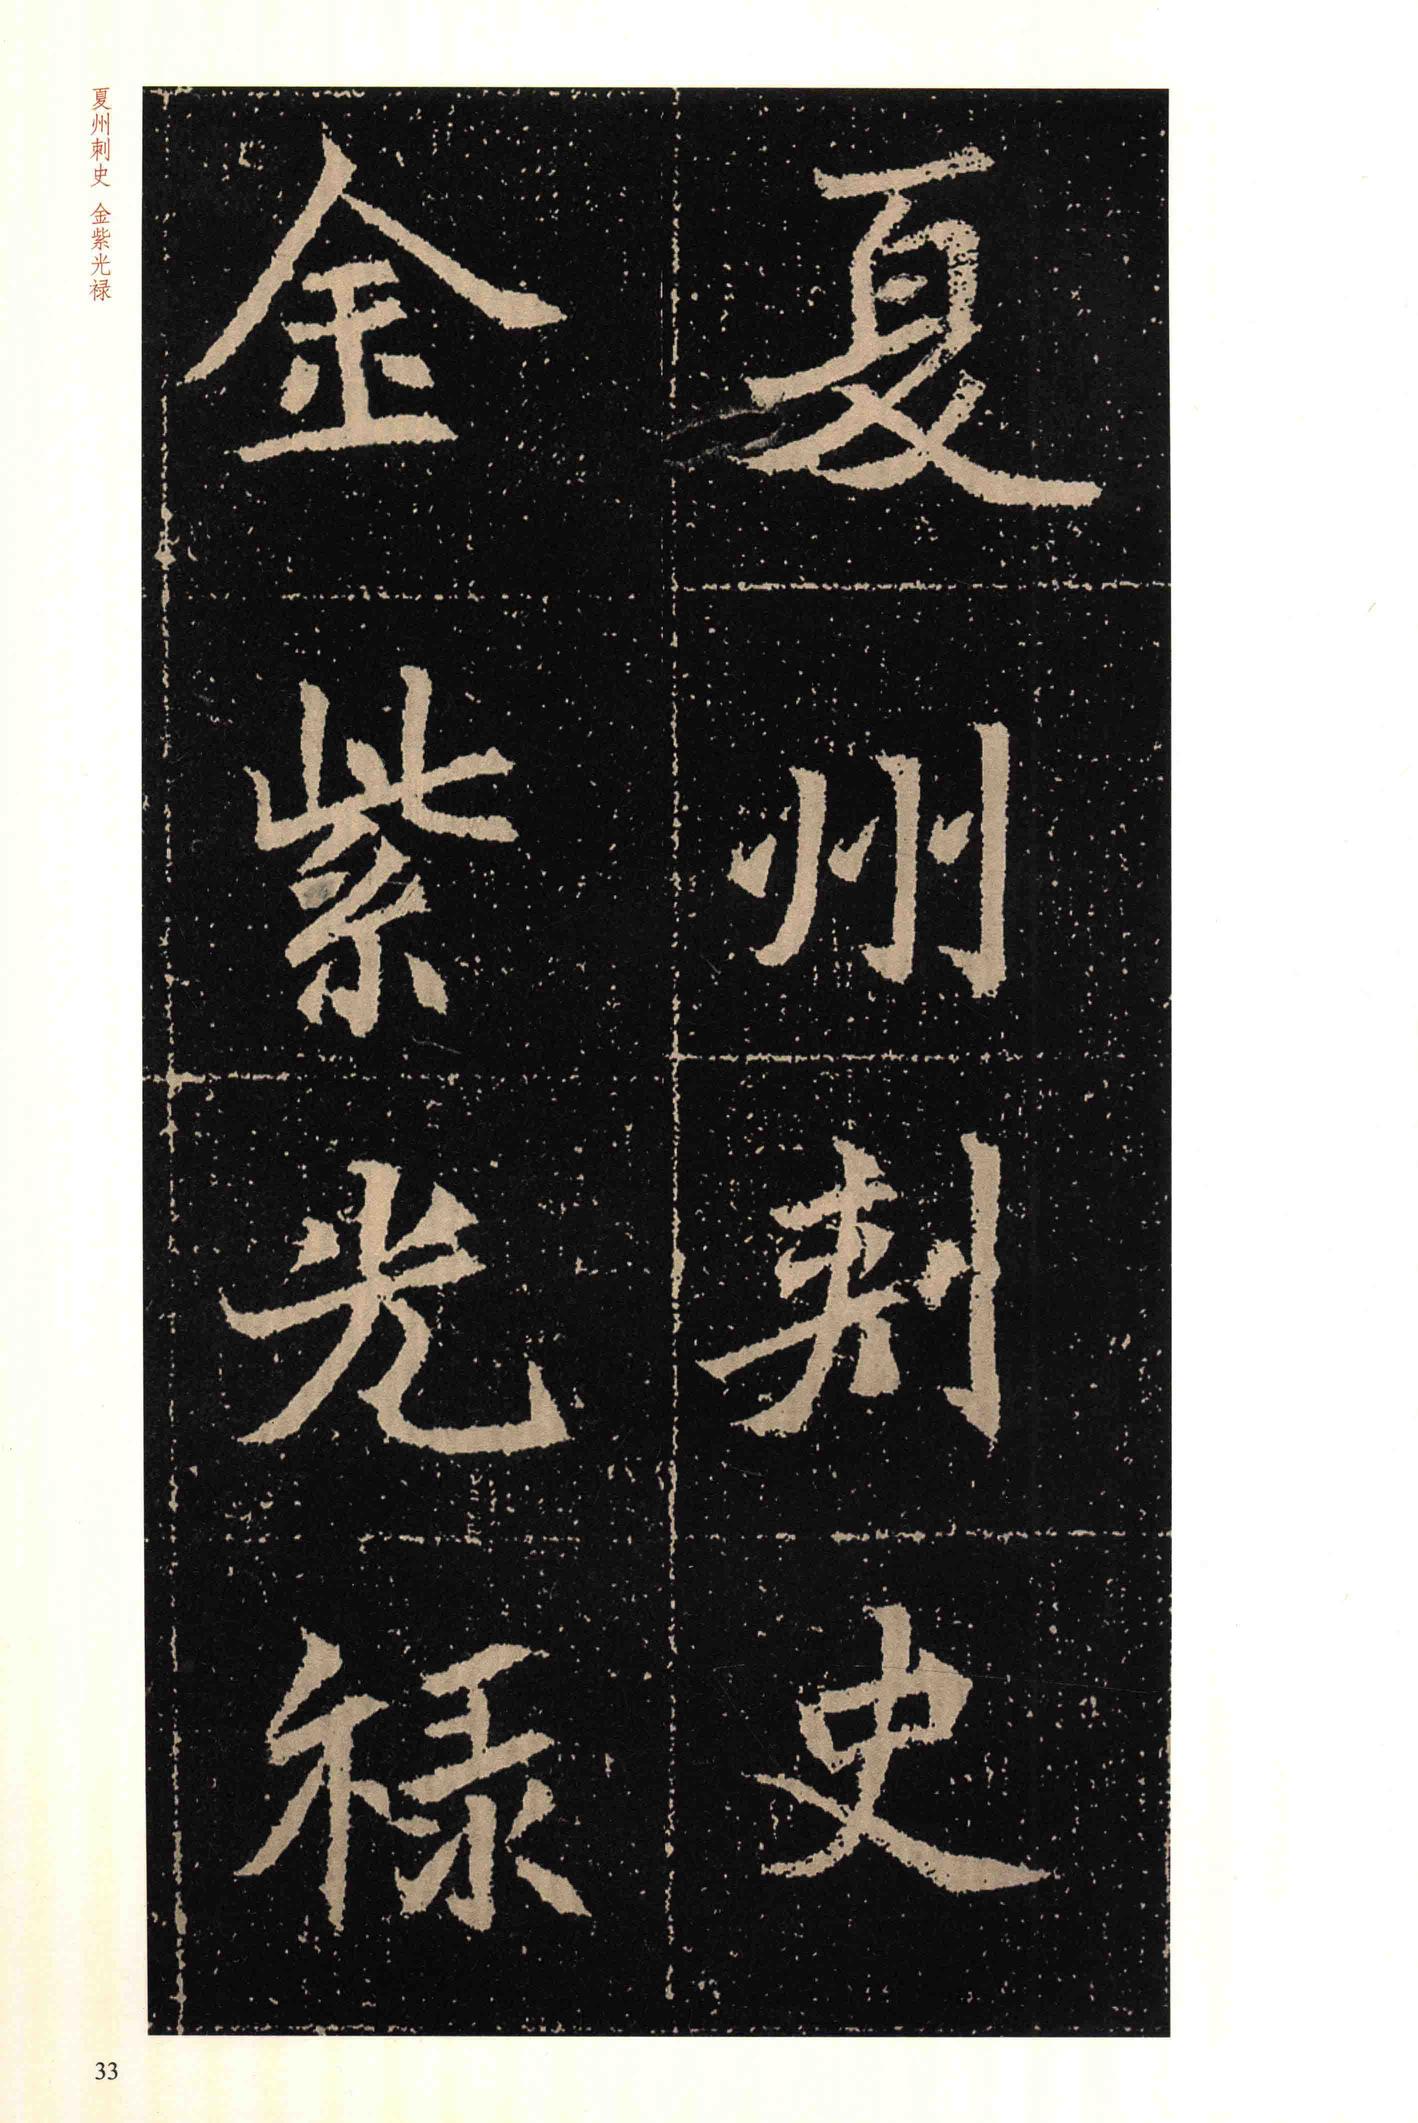 夏州刺史
金紫光禄
夏州刺史 金紫光禄
33